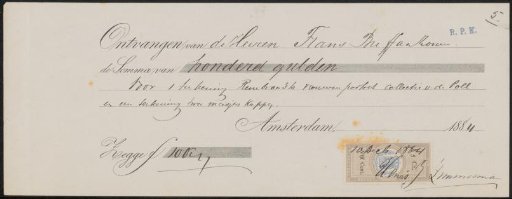 5.
R. P. K.
Ontvangen van de Heeren Frans Buffa en Zonen
de Somma van honderd gulden
Voor 1 teekening Rembrandts vrouwen portret collectie v. de Poll
en een teekening voor meisjes kopje
Amsterdam, 1884
Zegge ƒ 100
5 Ct.
10 Dec 1884